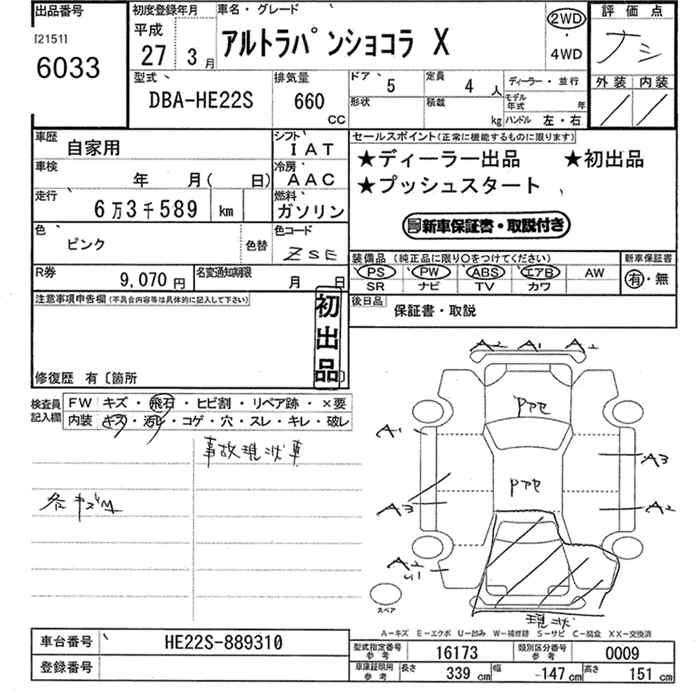 出品番号
[2151]
6033
初度登録年月
平成
27 3月
車名・グレード
アルトラパンショコラ X
2WD
・
4WD
評価点
ナシ
外装 内装
型式
DBA-HE22S
排気量
660
CC
ドア 5
定員 4 人
ディーラー・並行
形状
積載 kg
モデル年式 年
ハンドル 左・右
車歴 自家用
シフト IAT
車検 年 月( 日)
冷房 AAC
走行 6万3千589 km
燃料 ガソリン
色 ピンク
色替
色コード ZSE
R券 9,070 円
名変通知期限 月 日
セールスポイント(正常に機能するものに限ります)
★ディーラー出品 ★初出品
★プッシュスタート
新車保証書・取説付き
装備品(純正品に限り○をつけてください)
新車保証書
PS PW ABS エアB AW
SR ナビ TV カワ
有・無
後日品 保証書・取説
注意事項申告欄(不具合内容等は具体的に記入して下さい)
初出品
修復歴 有〔箇所 〕
検査員記入欄
FW キズ・飛石・ヒビ割・リペア跡・×要
内装 キズ・汚レ・コゲ・穴・スレ・キレ・破レ
事故現状車
各キズM
A2 A1 A2
Pアセ
A1
A3
Pアセ
A3
A2
A2
U1
スペア
現状
A-キズ E-エクボ U-凹み W-補修跡 S-サビ C-腐食 XX-交換済
車台番号 HE22S-889310
登録番号
型式指定番号 参考 16173
類別区分番号 参考 0009
車庫証明用 参考 長さ 339 cm 幅 -147 cm 高さ 151 cm